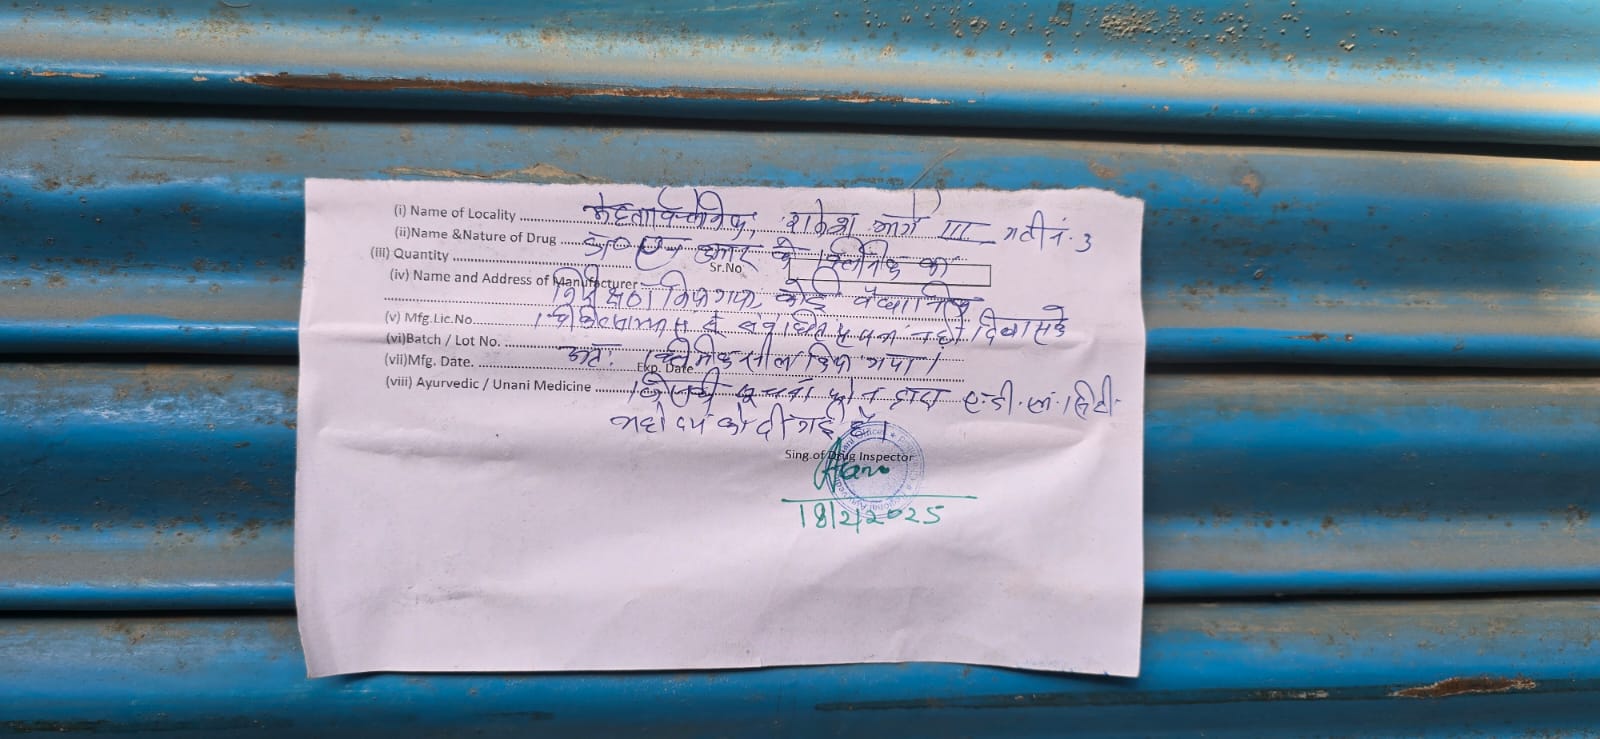 (i) Name of Locality मेहता क्लिनिक, राकेश मार्ग III गली नं. 3
(ii)Name &Nature of Drug डा० एन कुमार के क्लिनिक का
(iii) Quantity
Sr.No
(iv) Name and Address of Manufacturer निरीक्षण किया गया कोई
(v) Mfg.Lic.No. से संबंधित नहीं दिखा सके
(vi)Batch / Lot No.
(vii)Mfg. Date. अतः क्लीनिक सील किया गया।
Exp. Date
(viii) Ayurvedic / Unani Medicine जिसकी सूचना फोन द्वारा ए.डी.एम. सिटी
महोदय को दी गई है।
Sing.of Drug Inspector
18/2/2025